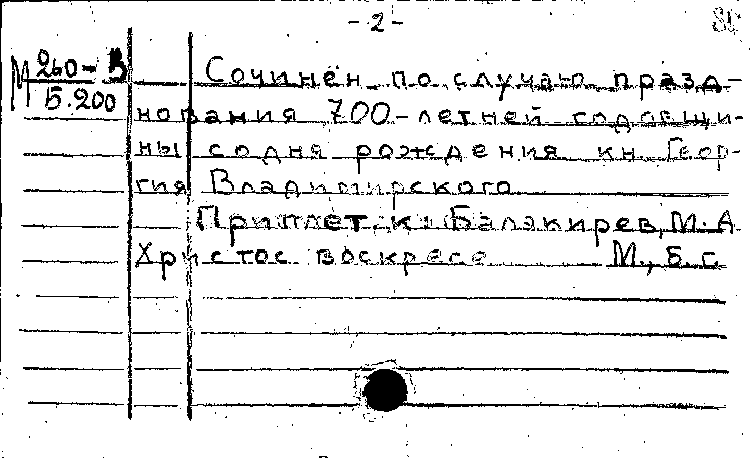 - 2 -
М 260-В
5.200
Сочинен по случаю празд-
нования 700-летней годовщи-
ны со дня рождения кн. Геор-
гия Владимирского
Приплет. к: Балакирев, М. А
Христос воскресе М., Б. г.